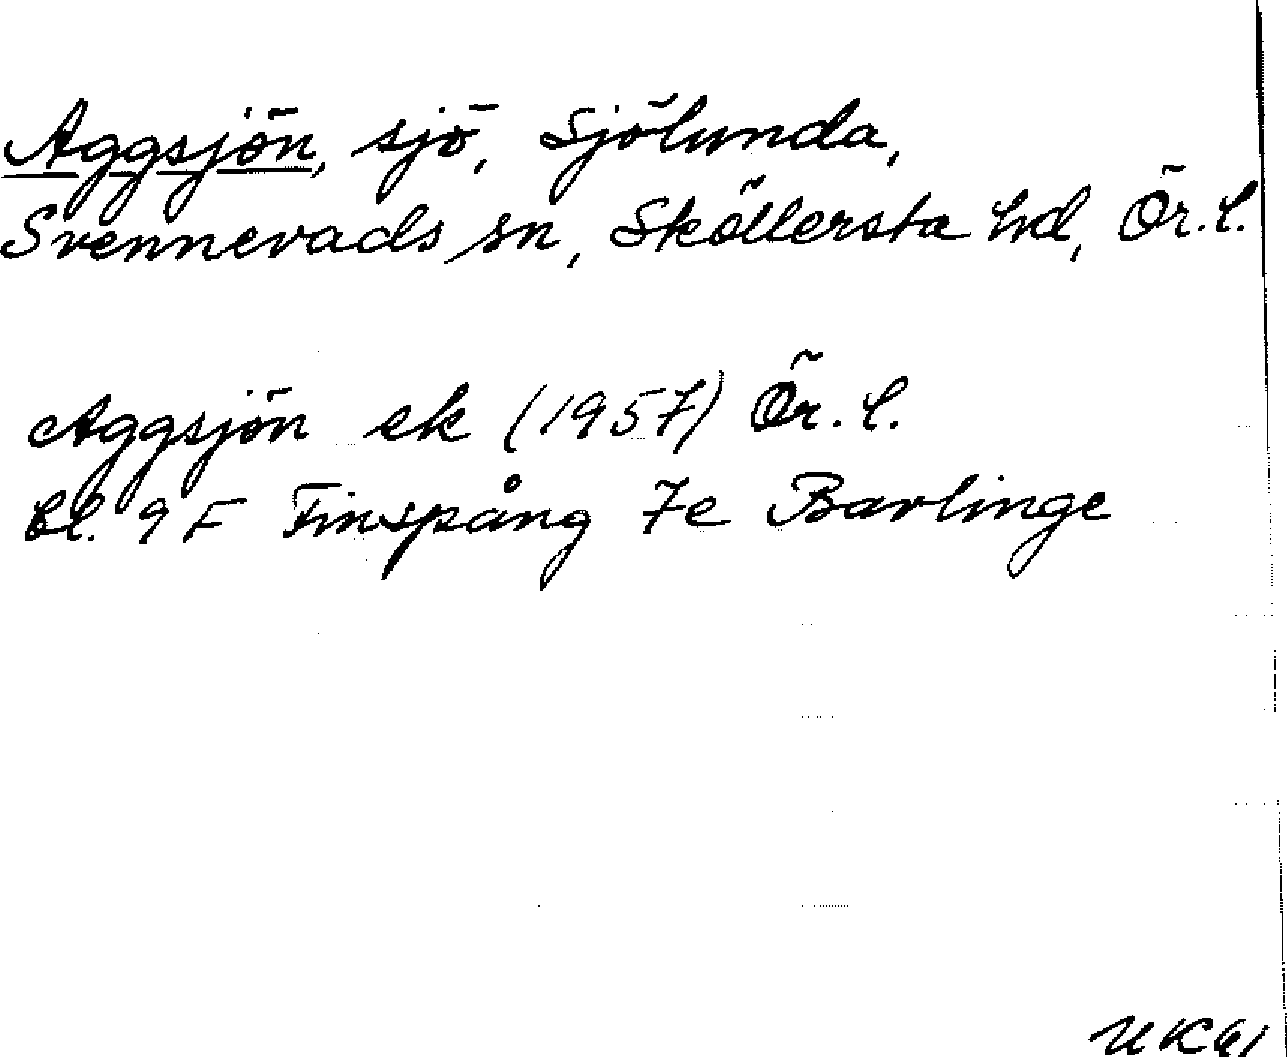 Aggsjön, sjö, Sjölunda,
Svennevads sn, Sköllersta hd, Ör. l.
Aggsjön ek (1957) Ör. l.
bl. 9 F Finspång 7e Barlinge